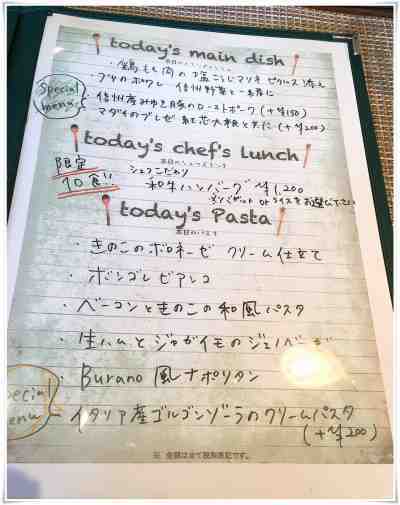 today's main dish
・鶏もも肉の塩こうじマリネ ピクルス添え
・ブリのポワレ 信州野菜と一緒に
Special menu
・信州産みゆき豚のローストポーク (+¥150)
・マダイのブレゼ 紅芯大根と共に (+¥200)
today's chef's Lunch
限定10食!!
シェフこだわり
和牛ハンバーグ ¥1,200
today's Pasta
・きのこのボロネーゼ クリーム仕立て
・ボンゴレビアンコ
・ベーコンときのこの和風パスタ
・生ハムとジャガイモのジェノベーゼ
・Burano風ナポリタン
Special menu
・イタリア産ゴルゴンゾーラのクリームパスタ
(+¥200)
※ 金額は全て税抜表記です。